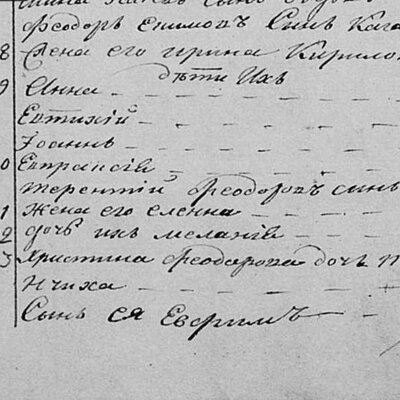 Феодоръ Екимовъ Сынъ Кага
8 Жена его ирина Кирило
дѣти Ихъ
9 Анна
Евтихій
Іоаннъ
0 Евпраксія
терентій Феодоровъ сынъ
1 Жена его елена
2 дочь ихъ меланія
3 Христина Феодорова дочь
Нчиха
Сынъ ея Ефримъ